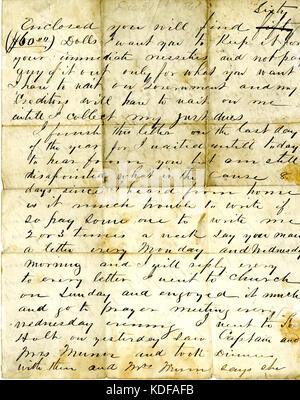 Sixty
Enclosed you will find
($60.00) Dolls I want you to Keep it for
your immediate and not pay
any of it out only for what you want
I have to wait on Government and my
Creditors will have to wait on me
untill I collect my Just dues
I finish this letter on the last day
of the year for I waited untill today
to hear from you but am still
disapointed what is the Cause 8
days since I heard from home
is it much trouble to write if
so pay some one to write me
2 or 3 times a week say you mail
a letter every Monday and Wednesday
morning and I will reply
to every letter I went to Church
on Sunday and engoyed it much
and go to prayer meeting every
wednesday evening I went to
Holt on yesterday saw Captain and
Mrs Munn and took Dinner
with them and Mrs Munn says she
alamy
KDFAFB